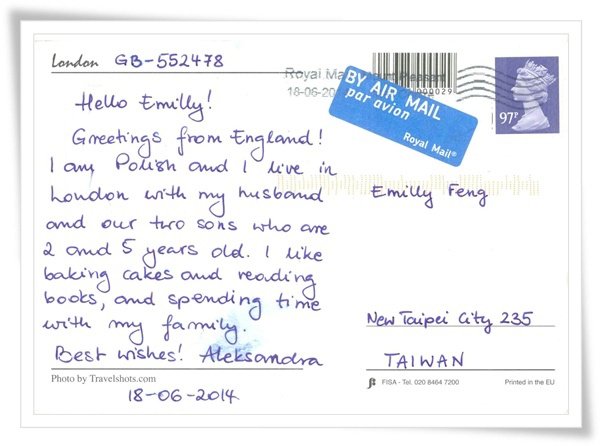 London GB-552478
Hello Emilly!
Greetings from England!
I am Polish and I live in
London with my husband
and our two sons who are
2 and 5 years old. I like
baking cakes and reading
books, and spending time
with my family.
Best wishes! Aleksandra
Photo by Travelshots.com
18-06-2014
Royal Mail Mount Pleasant
18-06-20
BY AIR MAIL
par avion
Royal Mail®
97P
Emilly Feng
New Taipei City 235
TAIWAN
FISA - Tel. 020 8464 7200
Printed in the EU